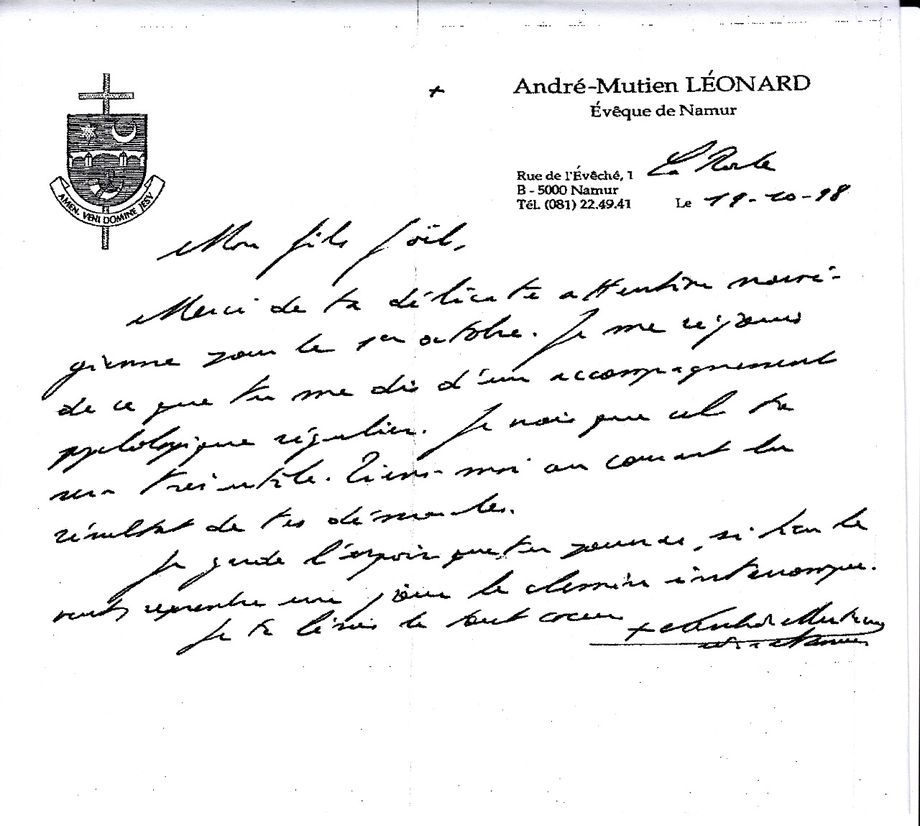 +
André-Mutien LÉONARD
Évêque de Namur
Rue de l'Évêché, 1
B - 5000 Namur
Tél. (081) 22.49.41
La Roche
Le 19-10-98
AMEN. VENI DOMINE JESV
Mon fils Joël,
Merci de ta délicate attention
pour le 1er octobre. Je me réjouis
de ce que tu me dis d'un accompagnement
psychologique régulier. Je crois que cela te
sera très utile. Tiens-moi au courant du
résultat de tes démarches.
Je garde l'espoir que tu pourras, si Dieu le
veut, reprendre un jour le chemin interrompu.
Je te bénis de tout coeur
+ André-Mutien
év. de Namur